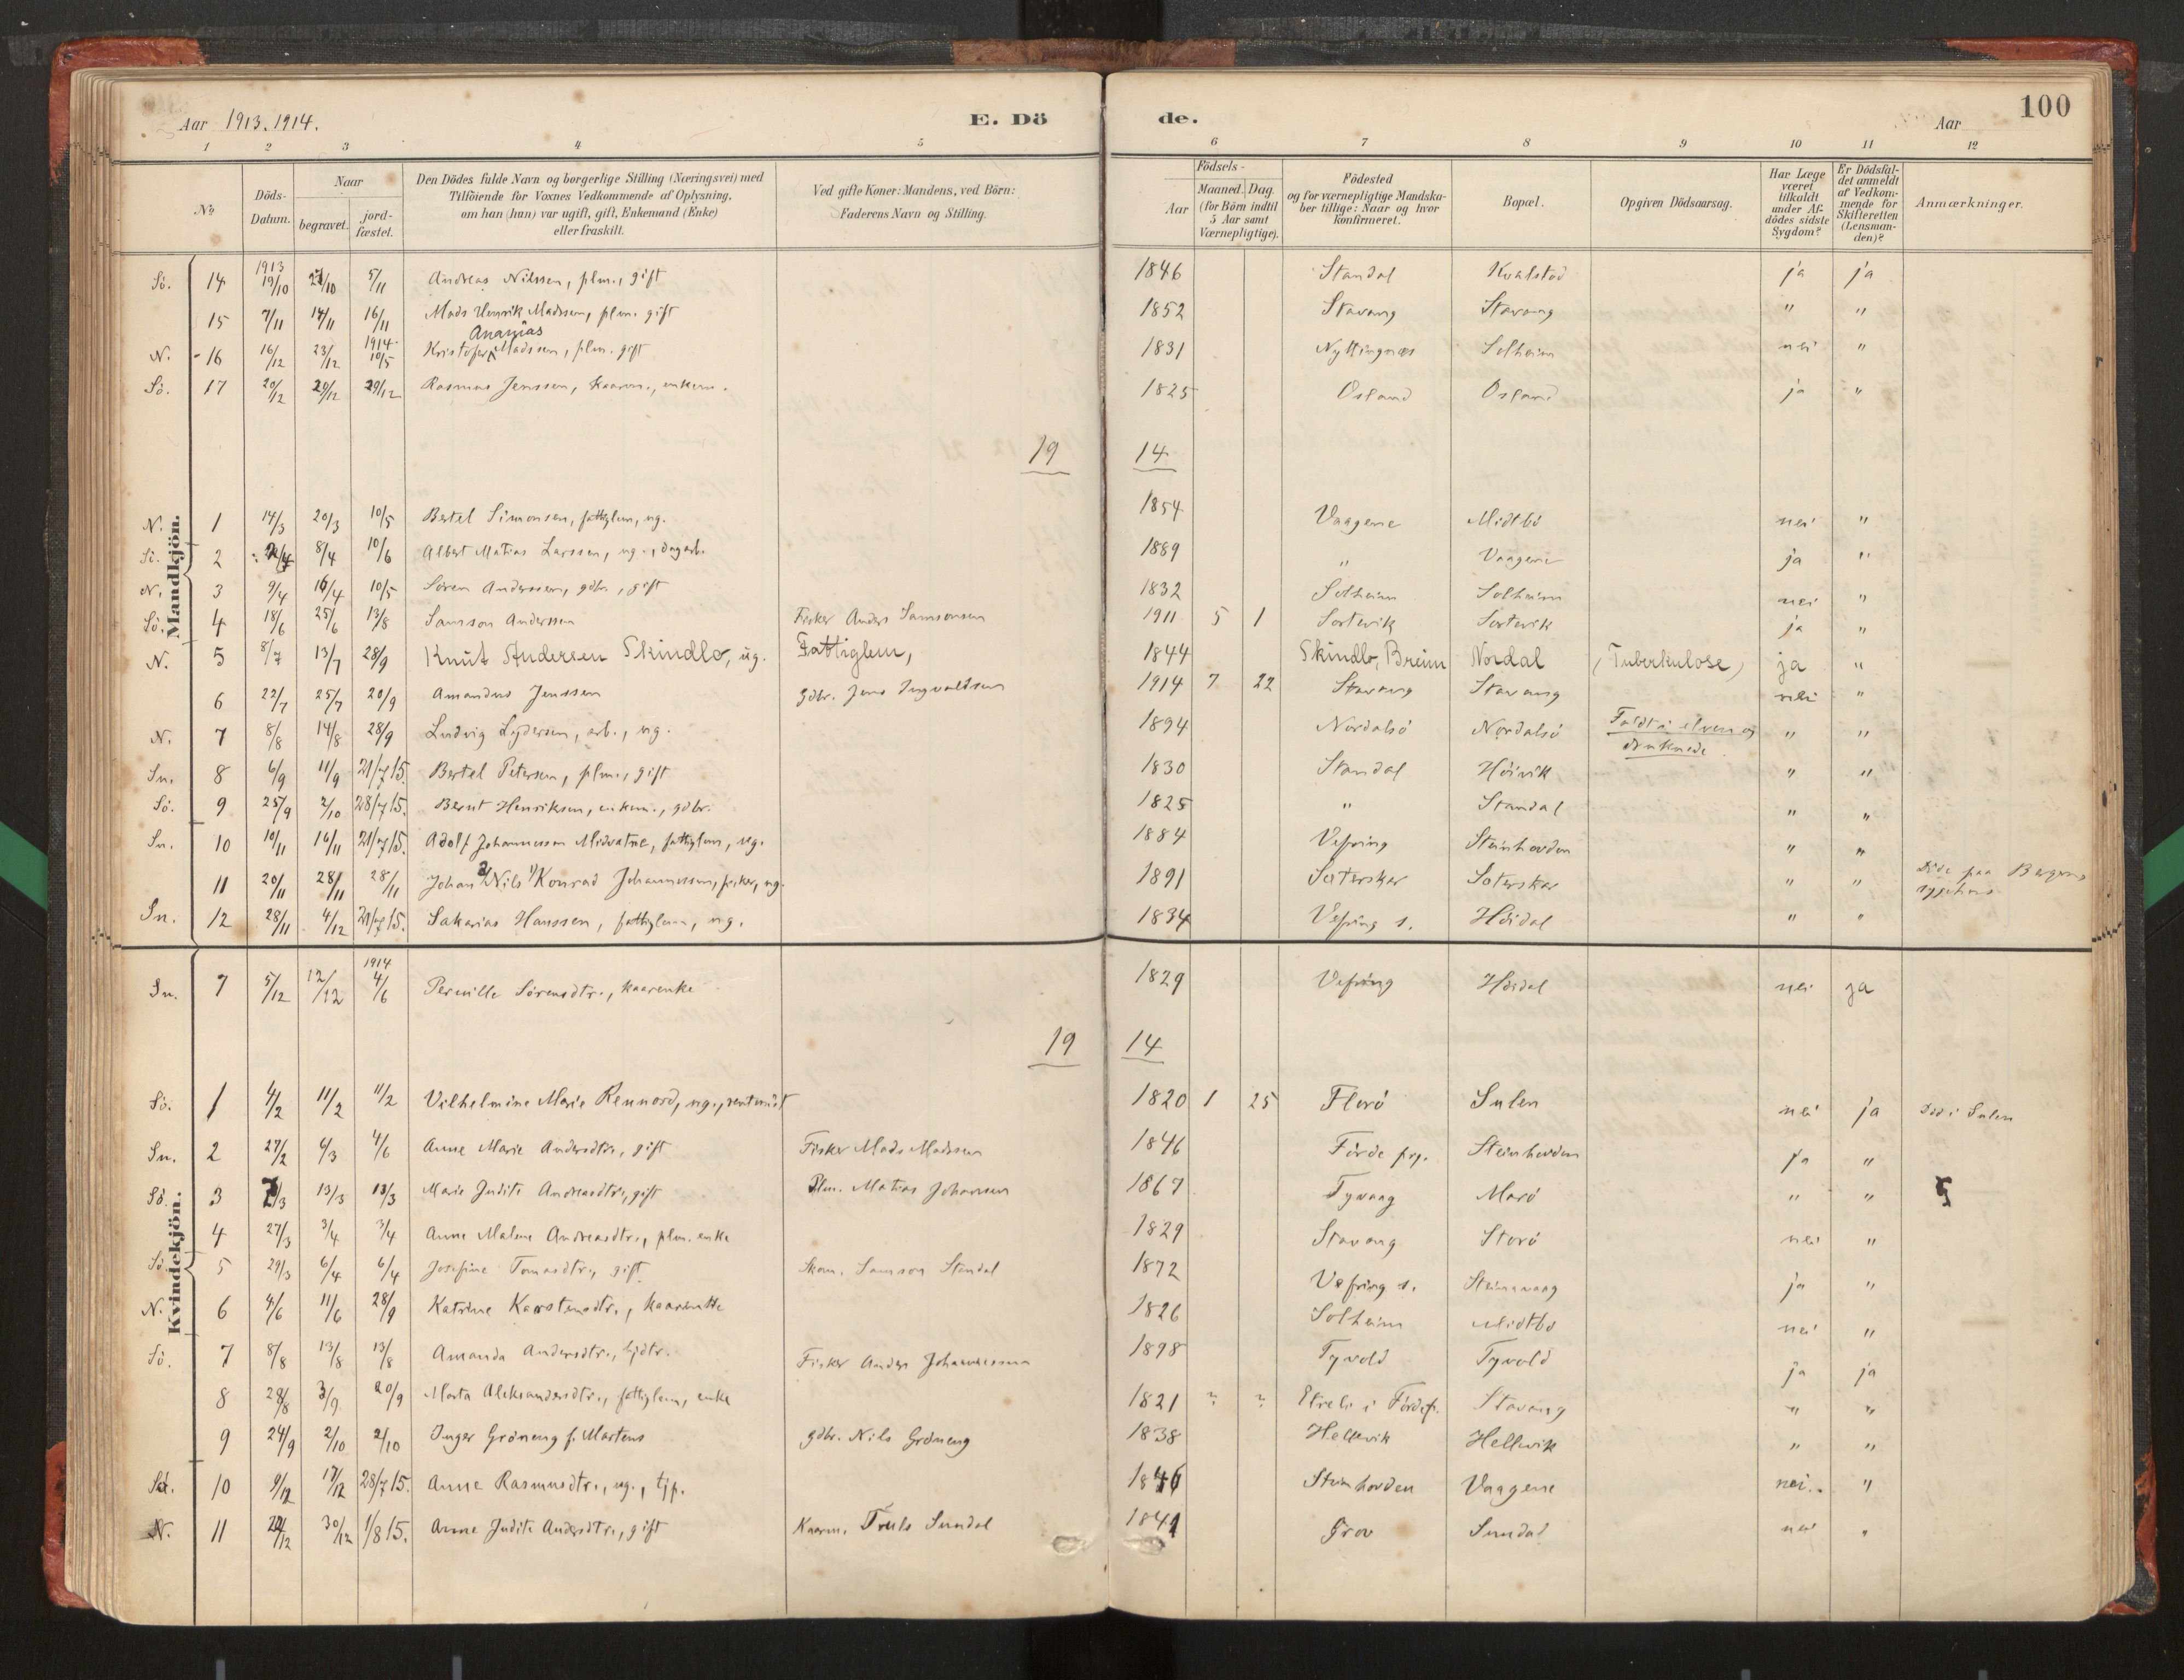 Aar 1913. 1914. E. Dö de. Aar 100
1 2 3 4 5 6 7 8 9 10 11 12
No Döds-Datum. Naar begravet. jord-fæstet. Den Dödes fulde Navn og borgerlige Stilling (Næringsvei) med Tilföiende for Voxnes Vedkommende af Oplysning, om han (hun) var ugift, gift, Enkemand (Enke) eller fraskilt. Ved gifte Koner: Mandens, ved Börn: Faderens Navn og Stilling. Aar Födsels- Maaned. Dag. (for Börn indtil 5 Aar samt Værnepligtige). Födested og for værnepligtige Mandskaber tillige: Naar og hvor konfirmeret. Bopæl. Opgiven Dödsaarsag. Har Læge været tilkaldt under Afdödes sidste Sygdom? Er Dödsfaldet anmeldt af Vedkommende for Skifteretten (Lensmanden)? Anmærkninger.
Mandkjön.
1913
Sö. 14 19/10 27/10 5/11 Andreas Nilssen, plm., gift 1846 Standal Kvalstad ja ja
15 7/11 14/11 16/11 Mads Henrik Madssen, plm. gift 1852 Stavang Stavang " "
Ananias
1914
N. 16 16/12 23/12 10/5 Kristofer Madssen, plm. gift 1831 Nyttingnæs Solheim nei "
Sö. 17 20/12 29/12 29/12 Rasmus Jenssen, kaarm., enkem. 1825 Osland Osland ja "
19 14
N. 1 14/3 20/3 10/5 Bertel Simonsen, fattiglem, ug. 1854 Vaagene Midtbö nei "
Sö. 2 8/4 10/6 Albert Matias Larssen, ug., dagarb. 1889 " Vaagene ja "
N. 3 9/4 16/4 10/5 Sören Anderssen, gdbr., gift 1832 Solheim Solheim nei "
Sö. 4 18/6 25/6 13/8 Samson Anderssen Fisker Anders Samsonsen 1911 5 1 Sortevik Sortevik ja "
N. 5 8/7 13/7 28/9 Knut Andersen Skindlo, ug. Fattiglem, 1844 Skindlo, Breim Nordal (Tuberkulose) ja "
6 22/7 25/7 20/9 Amandus Jenssen gdbr. Jens Ingvaldsen 1914 7 22 Stavang Stavang nei "
N. 7 8/8 14/8 28/9 Ludvig Lydersen, arb., ug. 1894 Nordalsö Nordalsö Faldt i elven og druknede " "
Sn. 8 6/9 11/9 21/7 15. Bertel Petersen, plm., gift 1830 Standal Höivik " "
Sö. 9 25/9 2/10 28/7 15. Bernt Henriksen, enkem., gdbr. 1825 " Standal " "
Sn. 10 10/11 16/11 21/7 15. Adolf Johannessen Midvatne, fattiglem, ug. 1884 Vefring Steinhovden " "
11 20/11 28/11 28/11 Johan 2) Nils 1) Konrad Johannessen, fisker, ug. 1891 Sæterskar Sæterskar " " Döde paa Bergens sygehus
Sn. 12 28/11 4/12 21/7 15. Sakarias Hanssen, fattiglem, ug. 1834 Vefring s. Höidal " "
Kvindekjön.
1914
Sn. 7 5/12 12/12 4/6 Pernille Sörensdtr., kaarenke 1829 Vefring Höidal nei ja
19 14
Sö. 1 4/2 11/2 11/2 Vilhelmine Marie Rennord, ug., rentenist 1820 1 25 Florö Sulen nei ja Död i Sulen
Sn. 2 27/2 6/3 4/6 Anne Marie Andersdtr., gift Fisker Mads Madssen 1846 Förde prg. Steinhovden ja "
Sö. 3 7/3 13/3 13/3 Marie Judite Andreasdtr., gift Plm. Matias Johansen 1867 Tyvaag Marö " "
4 27/3 3/4 3/4 Anne Malene Andreasdtr., plm. enke 1829 Stavang Storö nei "
Sö. 5 29/3 6/4 6/4 Josefine Tomasdtr., gift Skom. Samson Standal 1872 Vefring s. Steinsvaag ja "
N. 6 4/6 11/6 28/9 Katrine Karstensdtr., kaarenke 1826 Solheim Midtbö nei "
Sö. 7 8/8 13/8 13/8 Amanda Andersdtr., hjdtr. Fisker Anders Johannessen 1898 Tyvold Tyvold ja ja
8 28/8 3/9 20/9 Marta Aleksandersdtr., fattiglem, enke 1821 ? ? i Förde Stavang " "
9 24/9 2/10 2/10 Inger Gröneng f. Martens gdbr. Nils Gröneng 1838 Hellevik Hellevik " "
Sö. 10 9/12 17/12 28/7 15. Anne Rasmusdtr., ug., tjp. 1846 Steinhovden Vaagene nei. "
N. 11 22/12 30/12 1/8 15. Anne Judite Andersdtr., gift Kaarm. Truls Sundal 1841 Grov Sundal nei "